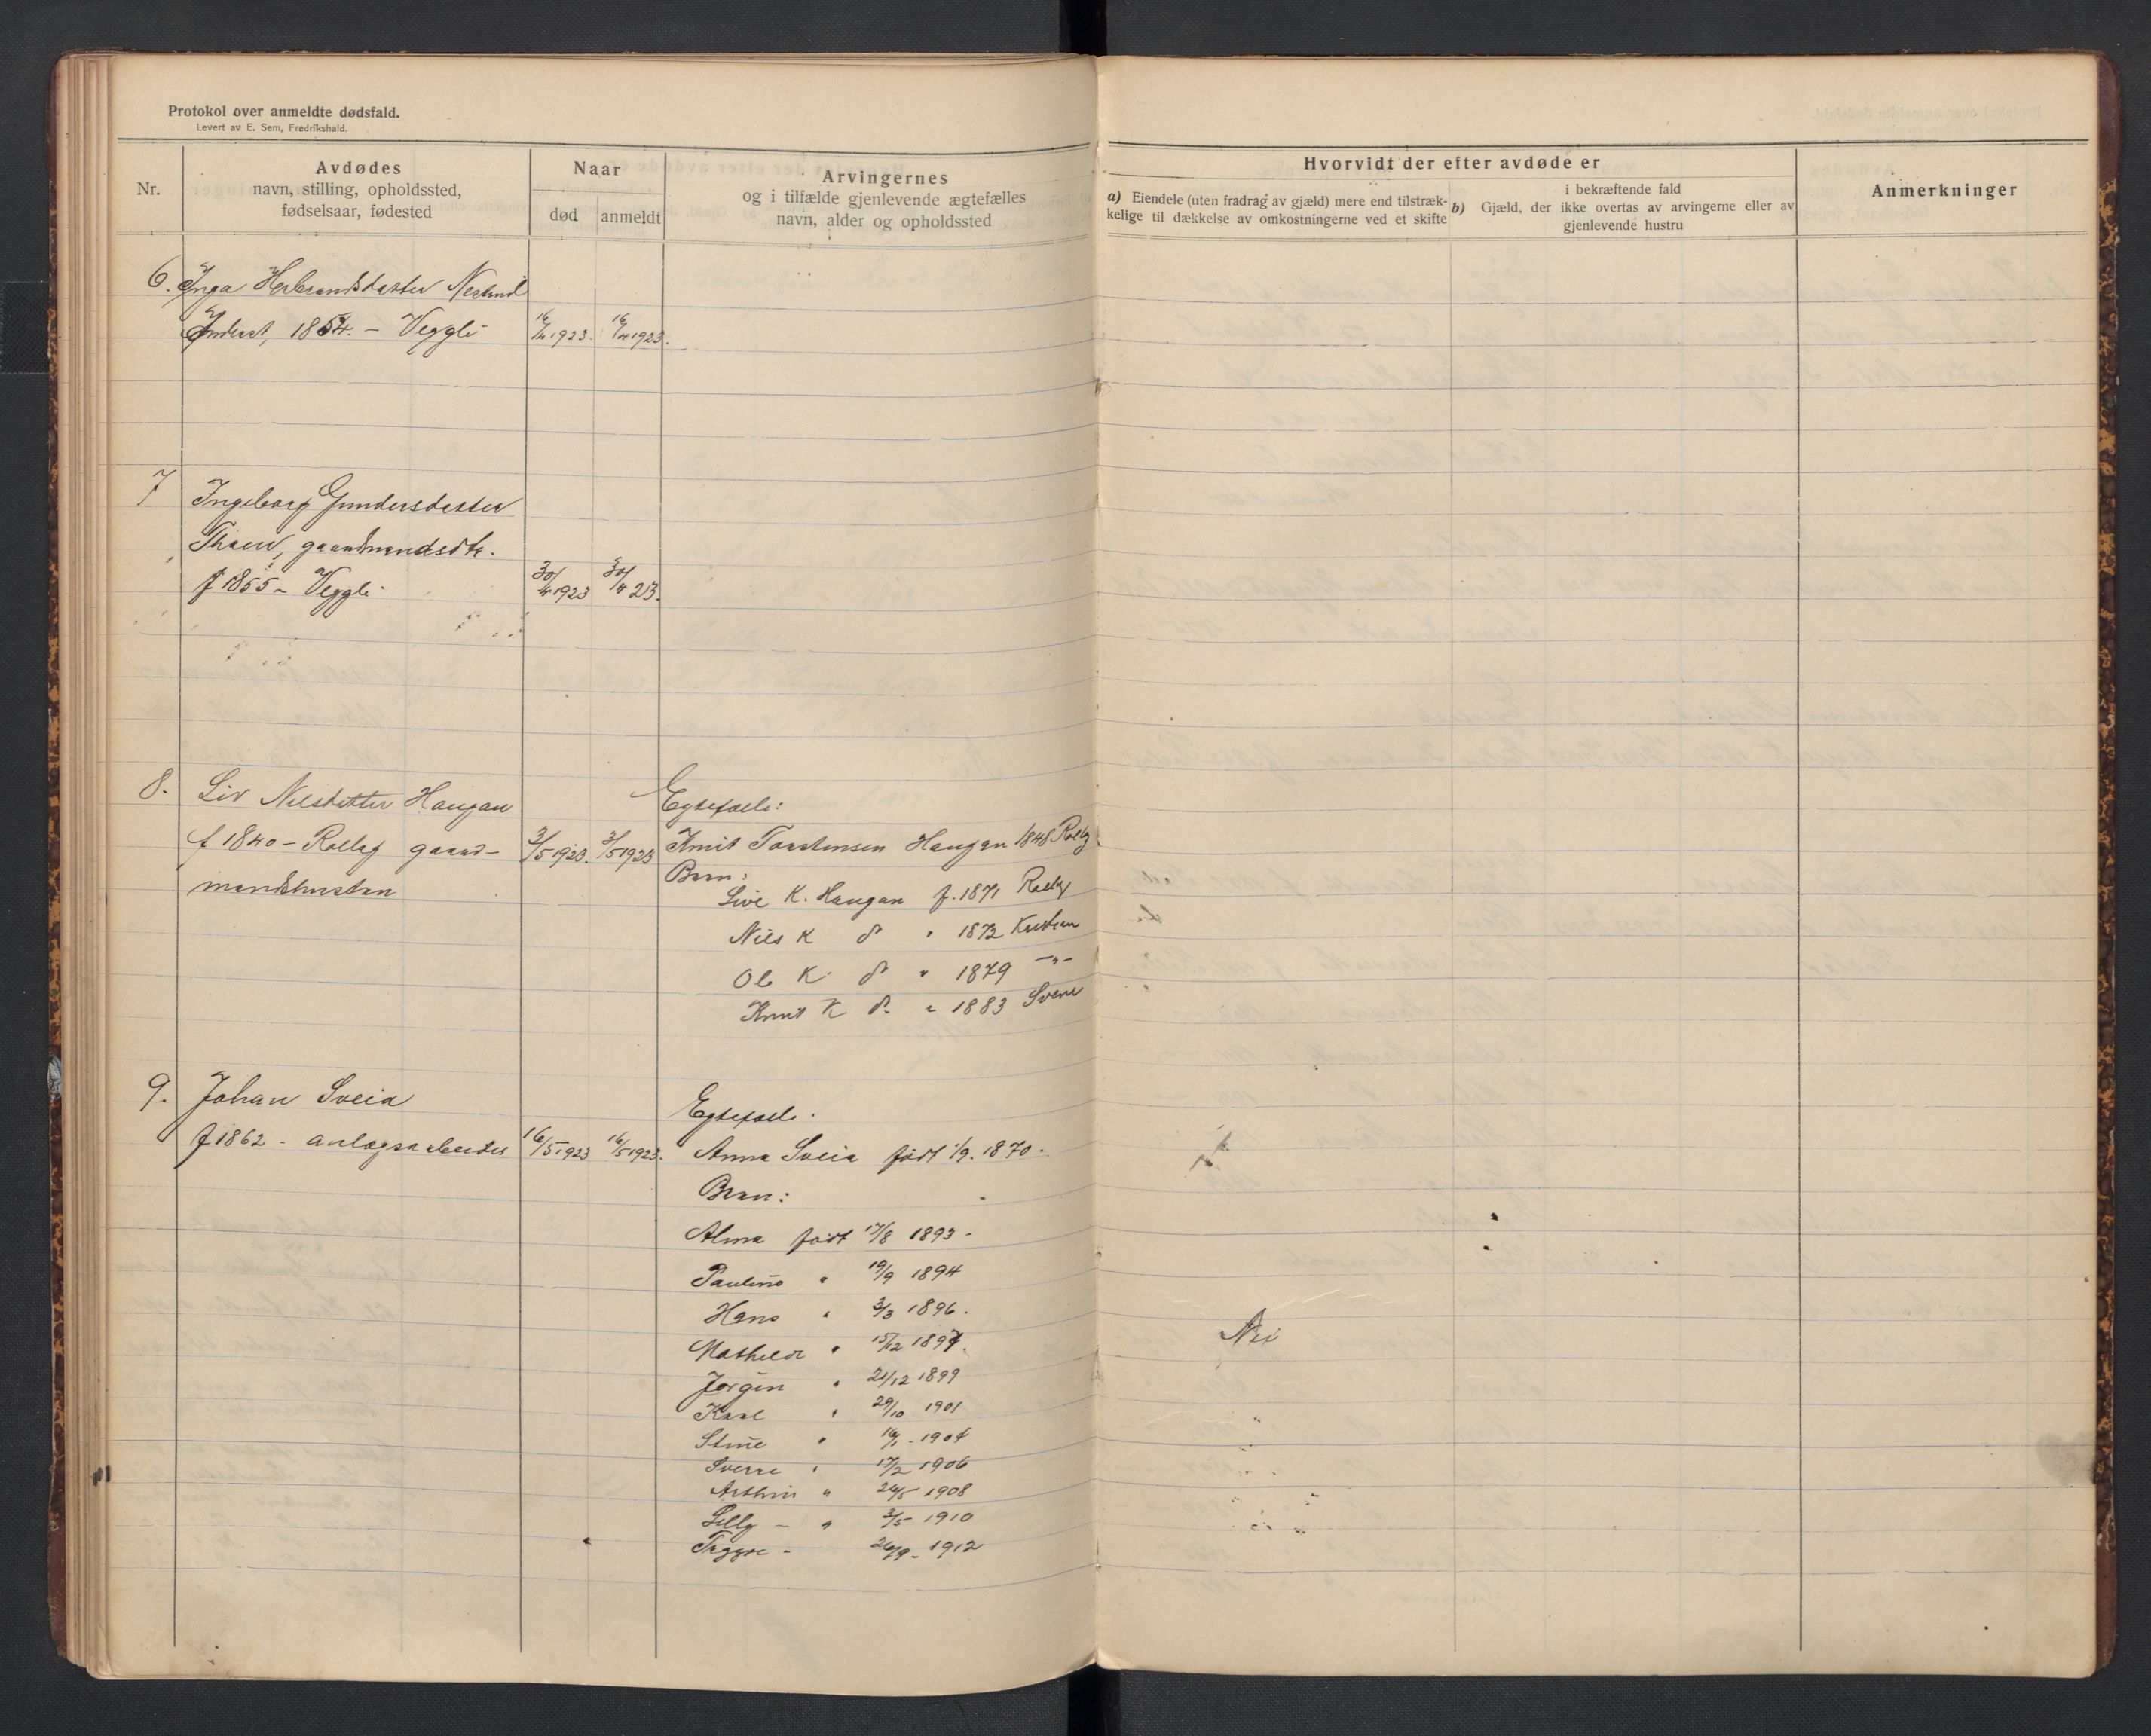 Protokol over anmeldte dødsfald.
Levert av E. Sem, Fredrikshald.
Nr.
Avdødes
navn, stilling, opholdssted,
fødselsaar, fødested
Naar
død
anmeldt
Arvingernes
og i tilfælde gjenlevende ægtefælles
navn, alder og opholdssted
Hvorvidt der efter avdøde er
a) Eiendele (uten fradrag av gjæld) mere end tilstræk-
kelige til dækkelse av omkostningerne ved et skifte
b) i bekræftende fald
Gjæld, der ikke overtas av arvingerne eller av
gjenlevende hustru
Anmerkninger
6. Inga Herbrandsdatter
Inderst, 1854. - Veggli 16/4 1923. 16/4 1923.
7 Ingeborg Gundersdatter
gaardmandsdtr.
f 1855 - Veggli 30/4 1923 30/4 23.
8. Liv Nilsdatter Haugan
f 1840 - Rollag gaard-
mandshustru
3/5 1923. 3/5 1923
Egtefælle:
Knut Torstensen Haugan 1848 Rollag
Barn:
Live K. Haugan f. 1871 Rollag
Nils K do " 1872
Ole K do " 1879 -"-
Knut K do " 1883 Svene
9. Johan Sveia
f 1862 - anlægsarbeider 16/5 1923 16/5 1923.
Egtefælle.
Anna Sveia født 1/9. 1870.
Barn:
Alma født 17/8 1893.
Pauline " 19/9 1894
Hans " 3/3 1896.
Mathilde " 15/12 1897.
Jørgen " 21/12 1899
Karl " 29/10 1901
Stine " 16/1 - 1904
Sverre " 17/2 1906
Arthur " 24/5 1908
Lilly - " 3/5 1910
Trygve - 26/9 - 1912
Nei